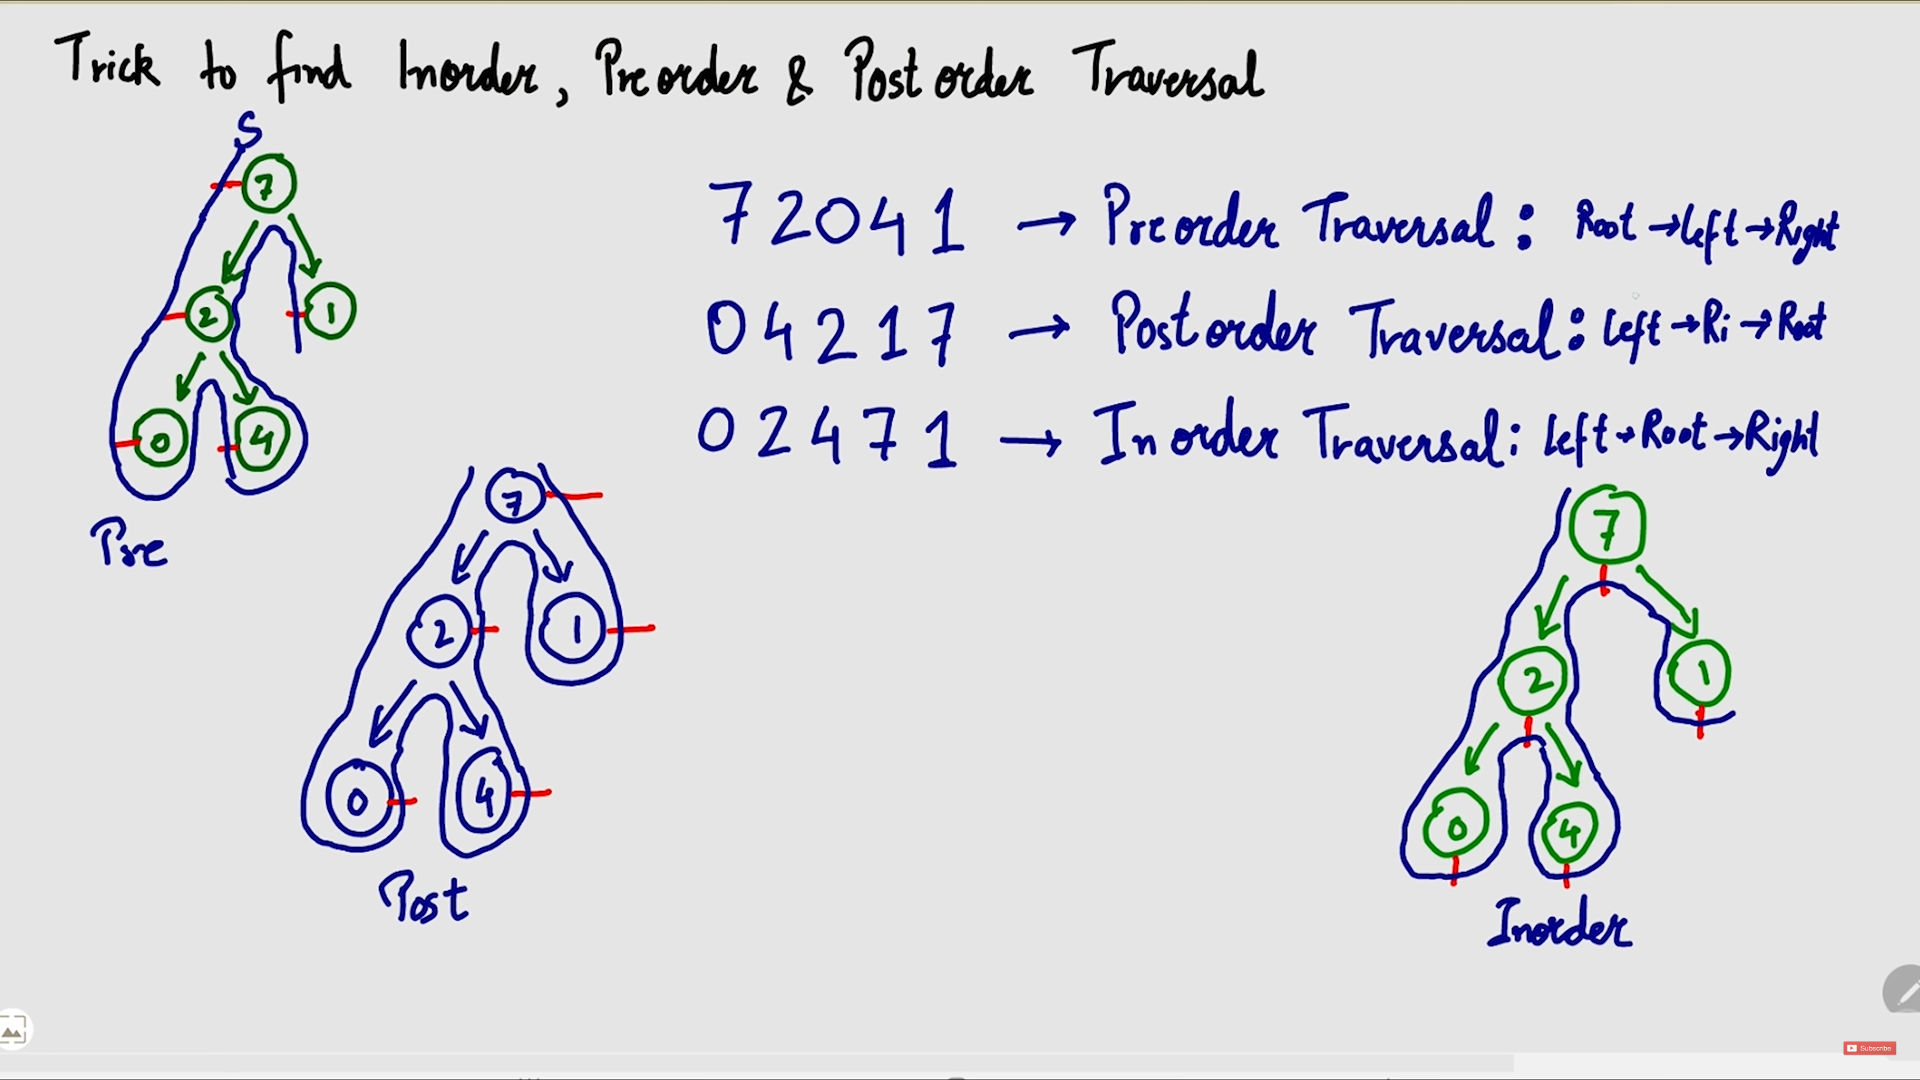 Trick to find Inorder, Preorder & Post order Traversal
S
7
2 1
0 4
Pre
7 2 0 4 1 → Preorder Traversal : Root → Left → Right
0 4 2 1 7 → Post order Traversal : Left → Ri → Root
0 2 4 7 1 → Inorder Traversal : Left → Root → Right
7
2 1
0 4
Post
7
2 1
0 4
Inorder
Subscribe